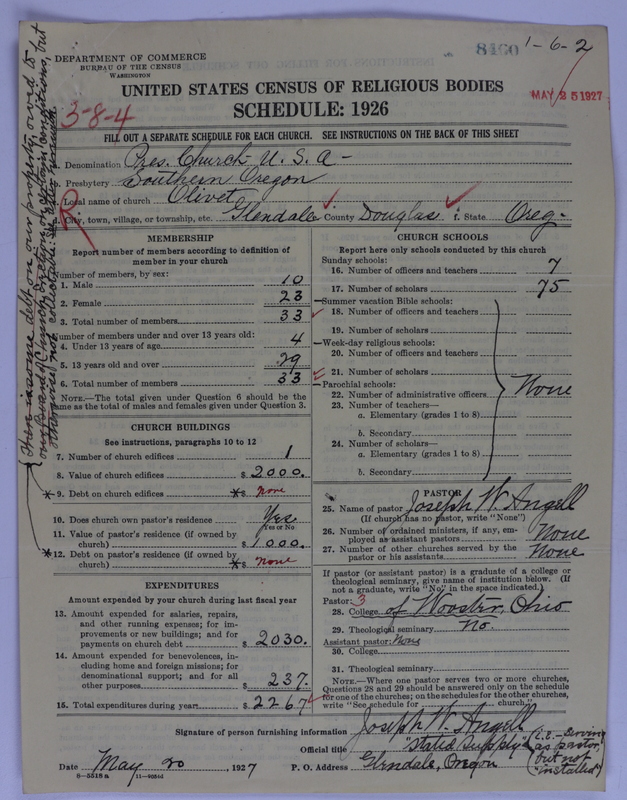 8460 1-6-2
DEPARTMENT OF COMMERCE
BUREAU OF THE CENSUS
WASHINGTON
UNITED STATES CENSUS OF RELIGIOUS BODIES
MAY 25 1927
SCHEDULE: 1926
3-8-4
FILL OUT A SEPARATE SCHEDULE FOR EACH CHURCH. SEE INSTRUCTIONS ON THE BACK OF THIS SHEET
Denomination Pres. Church U.S.A-
Presbytery Southern Oregon
Local name of church Olivet
City, town, village, or township, etc. Glendale County Douglas State Oreg-
There is some debt on our property, owed to
our Board of Church Erection, on certain conditions, but
otherwise not collectable.
MEMBERSHIP
Report number of members according to definition of
member in your church
Number of members, by sex:
1. Male 10
2. Female 23
3. Total number of members 33
Number of members under and over 13 years old:
4. Under 13 years of age 4
5. 13 years old and over 29
6. Total number of members 33
NOTE.—The total given under Question 6 should be the
same as the total of males and females given under Question 3.
CHURCH BUILDINGS
See instructions, paragraphs 10 to 12
7. Number of church edifices 1
8. Value of church edifices $ 2000.
* 9. Debt on church edifices * $ none
10. Does church own pastor's residence Yes
Yes or No
11. Value of pastor's residence (if owned by
church) $ 1000.
*12. Debt on pastor's residence (if owned by
church) * $ none
EXPENDITURES
Amount expended by your church during last fiscal year
13. Amount expended for salaries, repairs,
and other running expenses; for im-
provements or new buildings; and for
payments on church debt $ 2030.
14. Amount expended for benevolences, in-
cluding home and foreign missions; for
denominational support; and for all
other purposes $ 237.
15. Total expenditures during year $ 2267
CHURCH SCHOOLS
Report here only schools conducted by this church
Sunday schools:
16. Number of officers and teachers 7
17. Number of scholars 75
Summer vacation Bible schools:
18. Number of officers and teachers
19. Number of scholars
Week-day religious schools:
20. Number of officers and teachers
21. Number of scholars
Parochial schools:
22. Number of administrative officers None
23. Number of teachers—
a. Elementary (grades 1 to 8)
b. Secondary
24. Number of scholars—
a. Elementary (grades 1 to 8)
b. Secondary
PASTOR
25. Name of pastor Joseph W. Angell
(If church has no pastor, write "None")
26. Number of ordained ministers, if any, em-
ployed as assistant pastors None
27. Number of other churches served by the
pastor or his assistants None
If pastor (or assistant pastor) is a graduate of a college or
theological seminary, give name of institution below. (If
not a graduate, write "No" in the space indicated.)
Pastor: 3
28. College of Wooster, Ohio
29. Theological seminary No.
Assistant pastor: None
30. College
31. Theological seminary
NOTE.—Where one pastor serves two or more churches,
Questions 28 and 29 should be answered only on the schedule
for one of the churches; on the schedules for the other churches,
write "See schedule for church."
Signature of person furnishing information Joseph W. Angell
Official title "Stated Supply" (i.e.—Serving
as pastor,
but not
"installed")
Date May 20, 1927 P. O. Address Glendale, Oregon
8—5518a 11—9054d